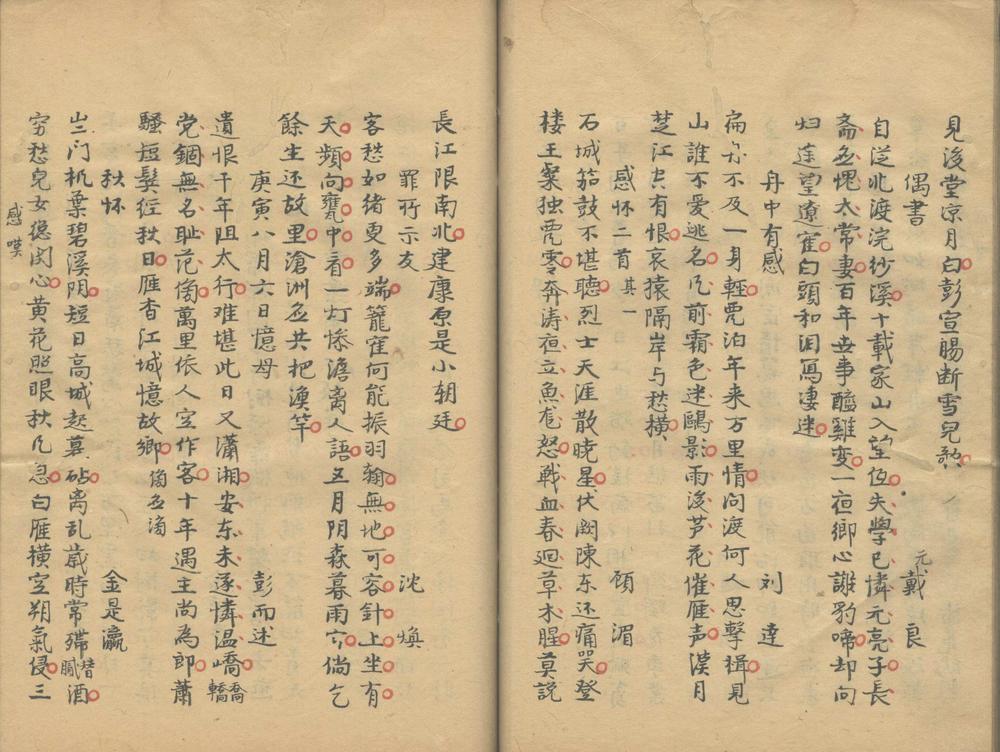 見後堂凉月白彭宣腸断雪兒歌
偶書 元戴良
自從北渡浣紗溪十載家山入望低失學已憐元亮子長
斋每愧太常妻百年世事醯雞变一夜鄉心謝豹啼却向
归途望遼寉白頭和泪寫凄迷
舟中有感 刘逹
扁舟不及一身輕飄泊年来万里情问渡何人思擊楫見
山誰不爱逃名几前霜色迷鷗影雨後芦花催雁声漠月
芝江共有恨哀猿隔岸与愁横
感怀二首其一 顾湄
石城笳鼓不堪聽烈士天涯散曉星伏闕陳东还痛哭登
楼王粲独飄零奔涛夜立魚龙怒戰血春迴草木腥莫説
長江限南北建康原是小朝廷
罪所示友 沈焕
客愁如绪更多端籠寉何能振羽翰無地可容針上坐有
天頻向甕中看一灯惨澹离人語五月阴森暮雨寒倘乞
餘生还故里滄洲每共把漁竿
庚寅八月六日憶母 彭而述
遺恨千年阻太行难堪此日又瀟湘安东未遂憐温嶠
轎
党錮無名耻范滂萬里依人空作客十年遇主尚為郎蕭
騷短髮经秋日雁杳江城憶故鄉
秋怀 金是瀛
岀门机葉碧溪阴短日高城起暮砧离乱歳時常殢酒
穷愁兒女總関心黄花照眼秋几急白雁横空朔氣侵三
感嘆